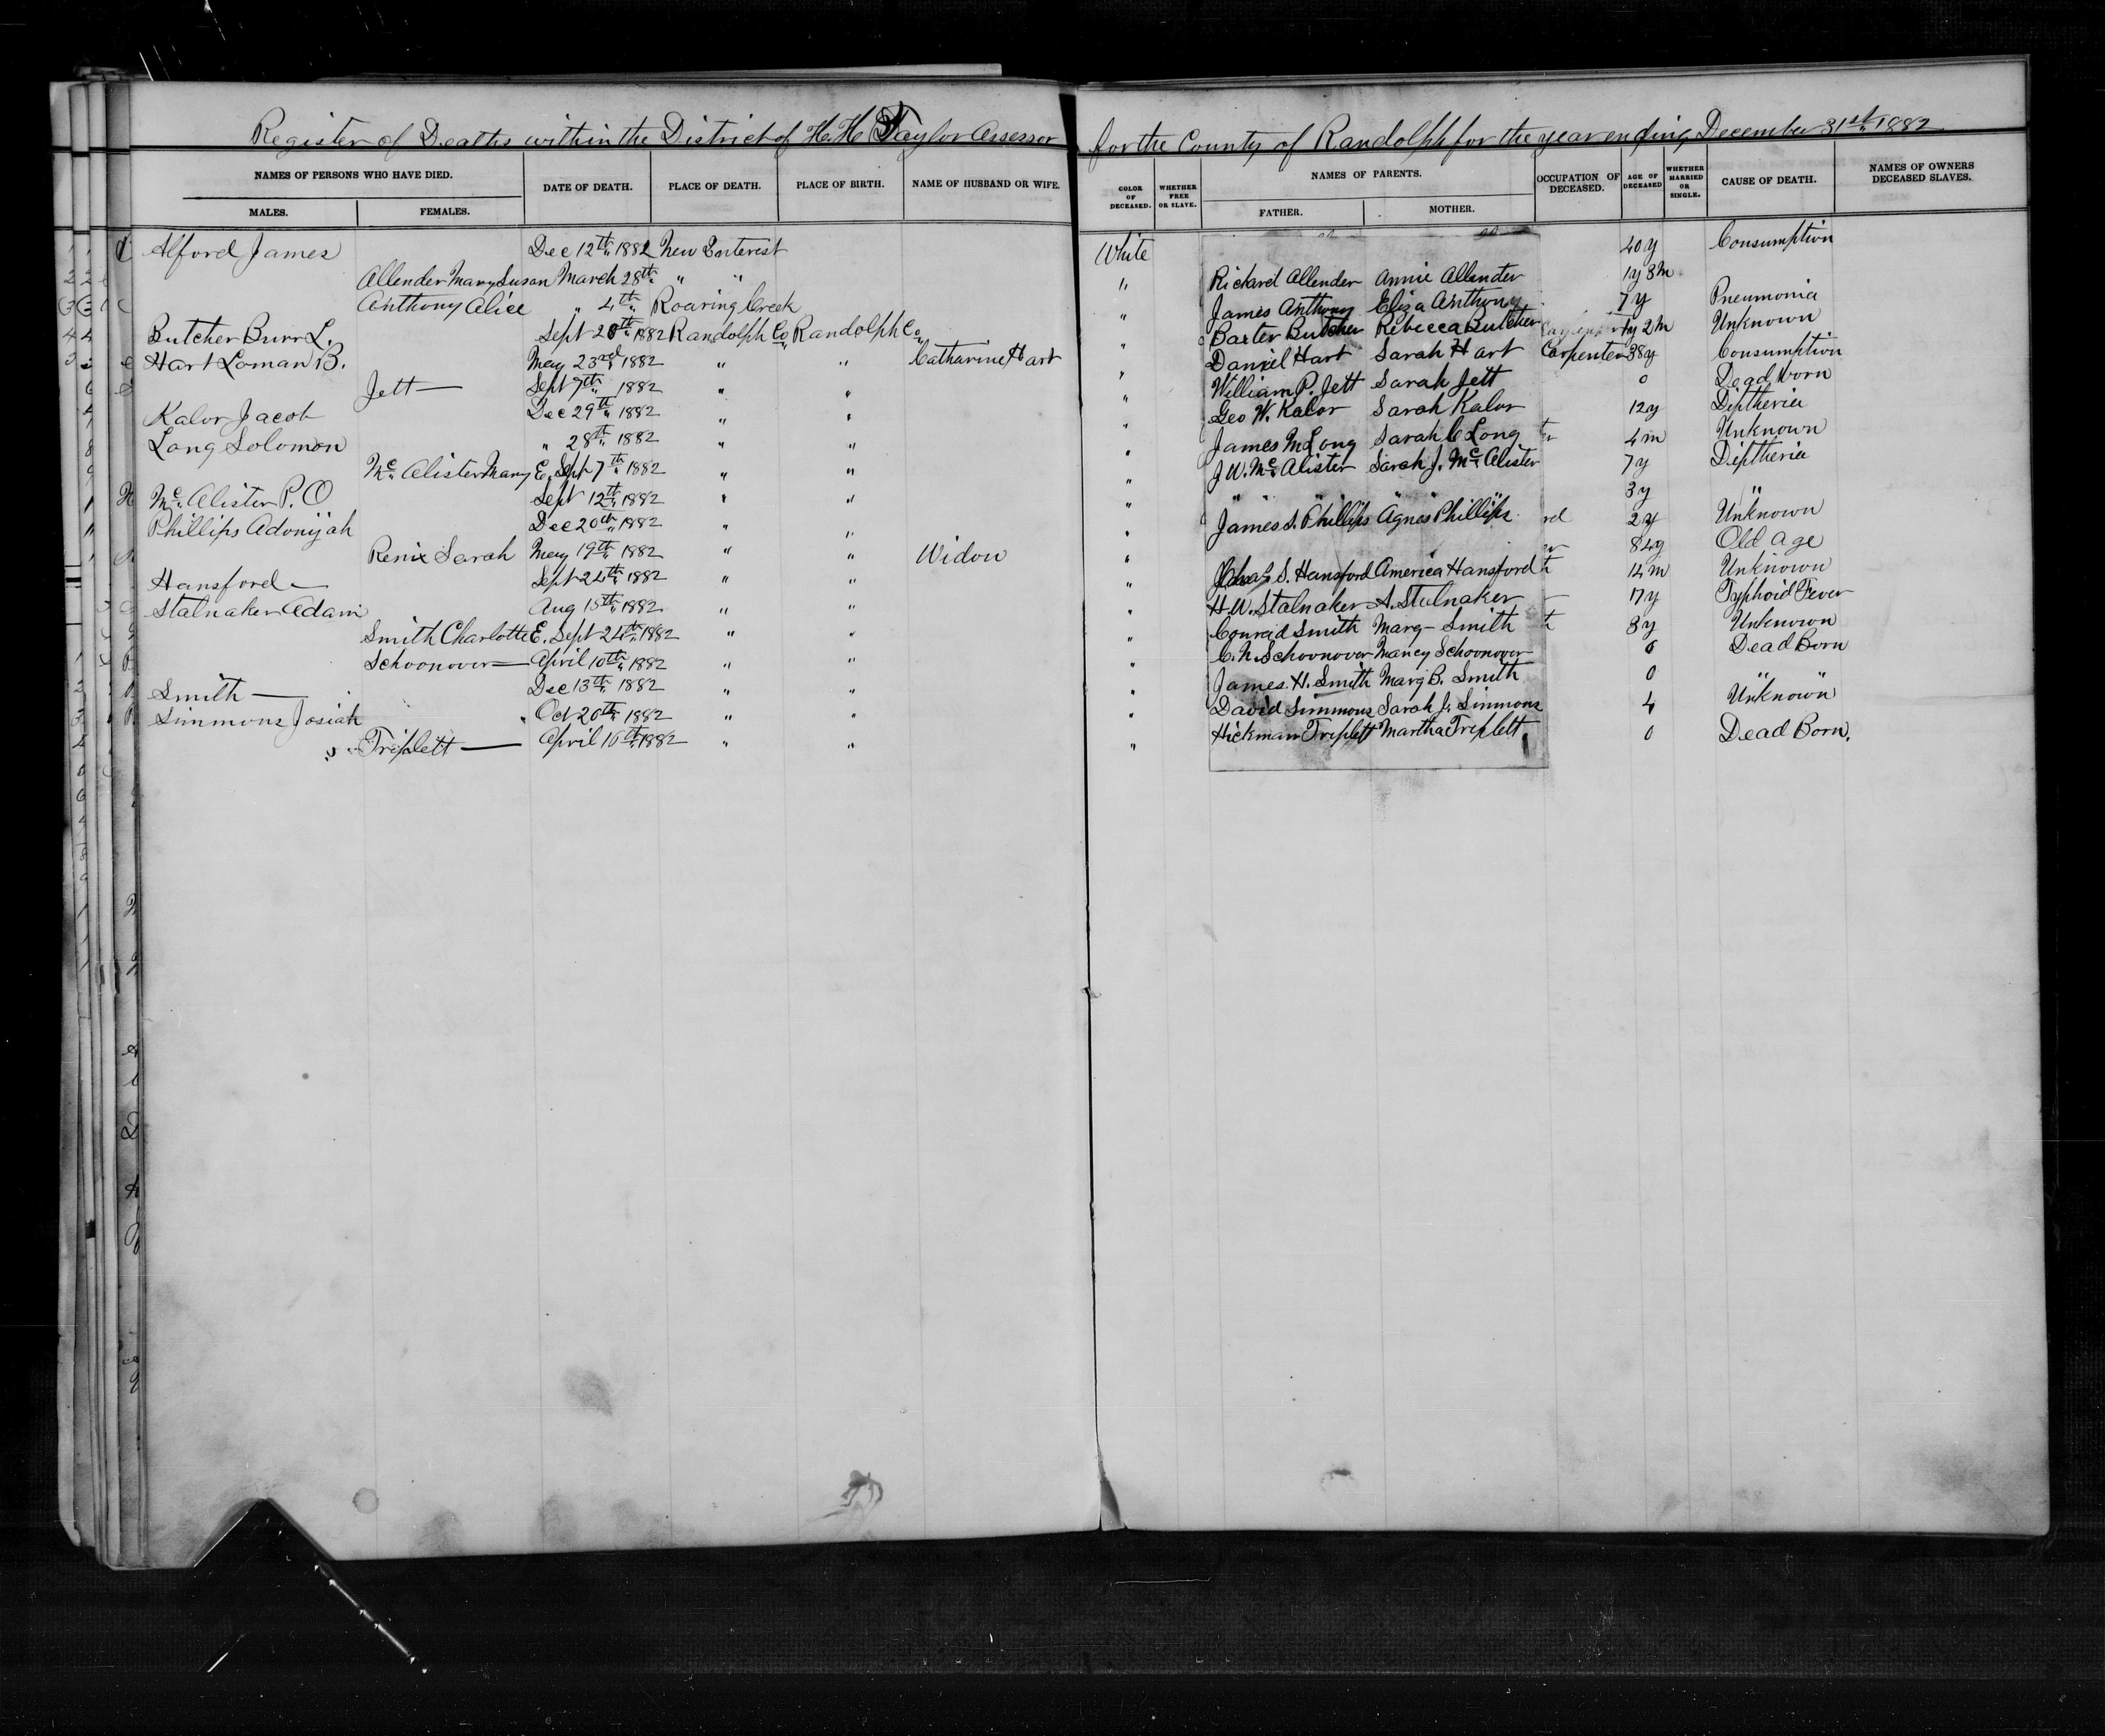 Register of Deaths within the District of H. H. Taylor Assessor for the County of Randolph for the year ending December 31st 1882
NAMES OF PERSONS WHO HAVE DIED. DATE OF DEATH. PLACE OF DEATH. PLACE OF BIRTH. NAME OF HUSBAND OR WIFE. COLOR OF DECEASED. WHETHER FREE OR SLAVE. NAMES OF PARENTS. OCCUPATION OF DECEASED. AGE OF DECEASED WHETHER MARRIED OR SINGLE. CAUSE OF DEATH. NAMES OF OWNERS DECEASED SLAVES.
MALES. FEMALES. FATHER. MOTHER.
Alford James Dec 12th 1882 New Interest White 40 y Consumption
Allender Mary Susan March 28th " " " Richard Allender Annie Allender 1y 3m
Anthony Alice " 4th Roaring Creek " James Anthony Eliza Anthony 7 y Pneumonia
Butcher Burr L. Sept 20th 1882 Randolph Co Randolph Co " Baxter Butcher Rebecca Butcher 1y 2m Unknown
Hart Loman B. May 23rd 1882 " " Catharine Hart " Daniel Hart Sarah Hart Carpenter 38y Consumption
Jett — Sept 7th 1882 " " " William P. Jett Sarah Jett 0 Dead born
Kalor Jacob Dec 29th 1882 " " " Geo W. Kalor Sarah Kalor 12y Diptheria
Long Solomon " 28th 1882 " " " James M Long Sarah C Long 4 m Unknown
Mc Alister Mary E. Sept 7th 1882 " " " J W. Mc Alister Sarah J. Mc Alister 7y Diptheria
Mc Alister P. O Sept 12th 1882 " " " " " " " 3 y "
Phillips Adonijah Dec 20th 1882 " " " James S. Phillips Agnes Phillips 2 y Unknown
Renix Sarah May 19th 1882 " " Widow " 84y Old Age
Hansford — Sept 24th 1882 " " " S. Hansford America Hansford 14 m Unknown
Stalnaker Adam Aug 15th 1882 " " " H. W. Stalnaker A. Stalnaker 17 y Typhoid Fever
Smith Charlotte E. Sept 24th 1882 " " " Conrad Smith Marg — Smith 8y Unknown
Schoonover — April 10th 1882 " " " C. N. Schoonover Nancy Schoonover 0 Dead Born
Smith — Dec 13th 1882 " " " James. H. Smith Marg B. Smith 0 " "
Simmons Josiah Oct 20th 1882 " " " David Simmons Sarah J. Simmons 4 Unknown
Triplett — April 16th 1882 " " " Hickman Triplett Martha Triplett 0 Dead Born.